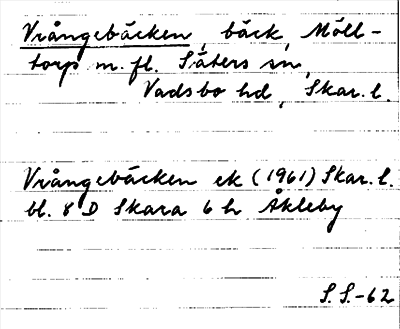 Vrångebäcken, bäck, Möll-
torp m. fl. Säters sn,
Vadsbo hd, Skar. l.
Vrångebäcken ek (1961) Skar. l.
bl. 8 D Skara 6 h Åkleby
S. S.-62